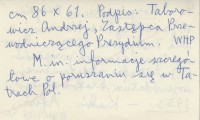 cm 86 x 61. Podpis: Taboro-
wicz Andrzej, Zastępca Prze-
wodniczącego Prezydium. WHP
M. in. informacje szczegó-
łowe o poruszaniu się w Ta-
trach Pol.